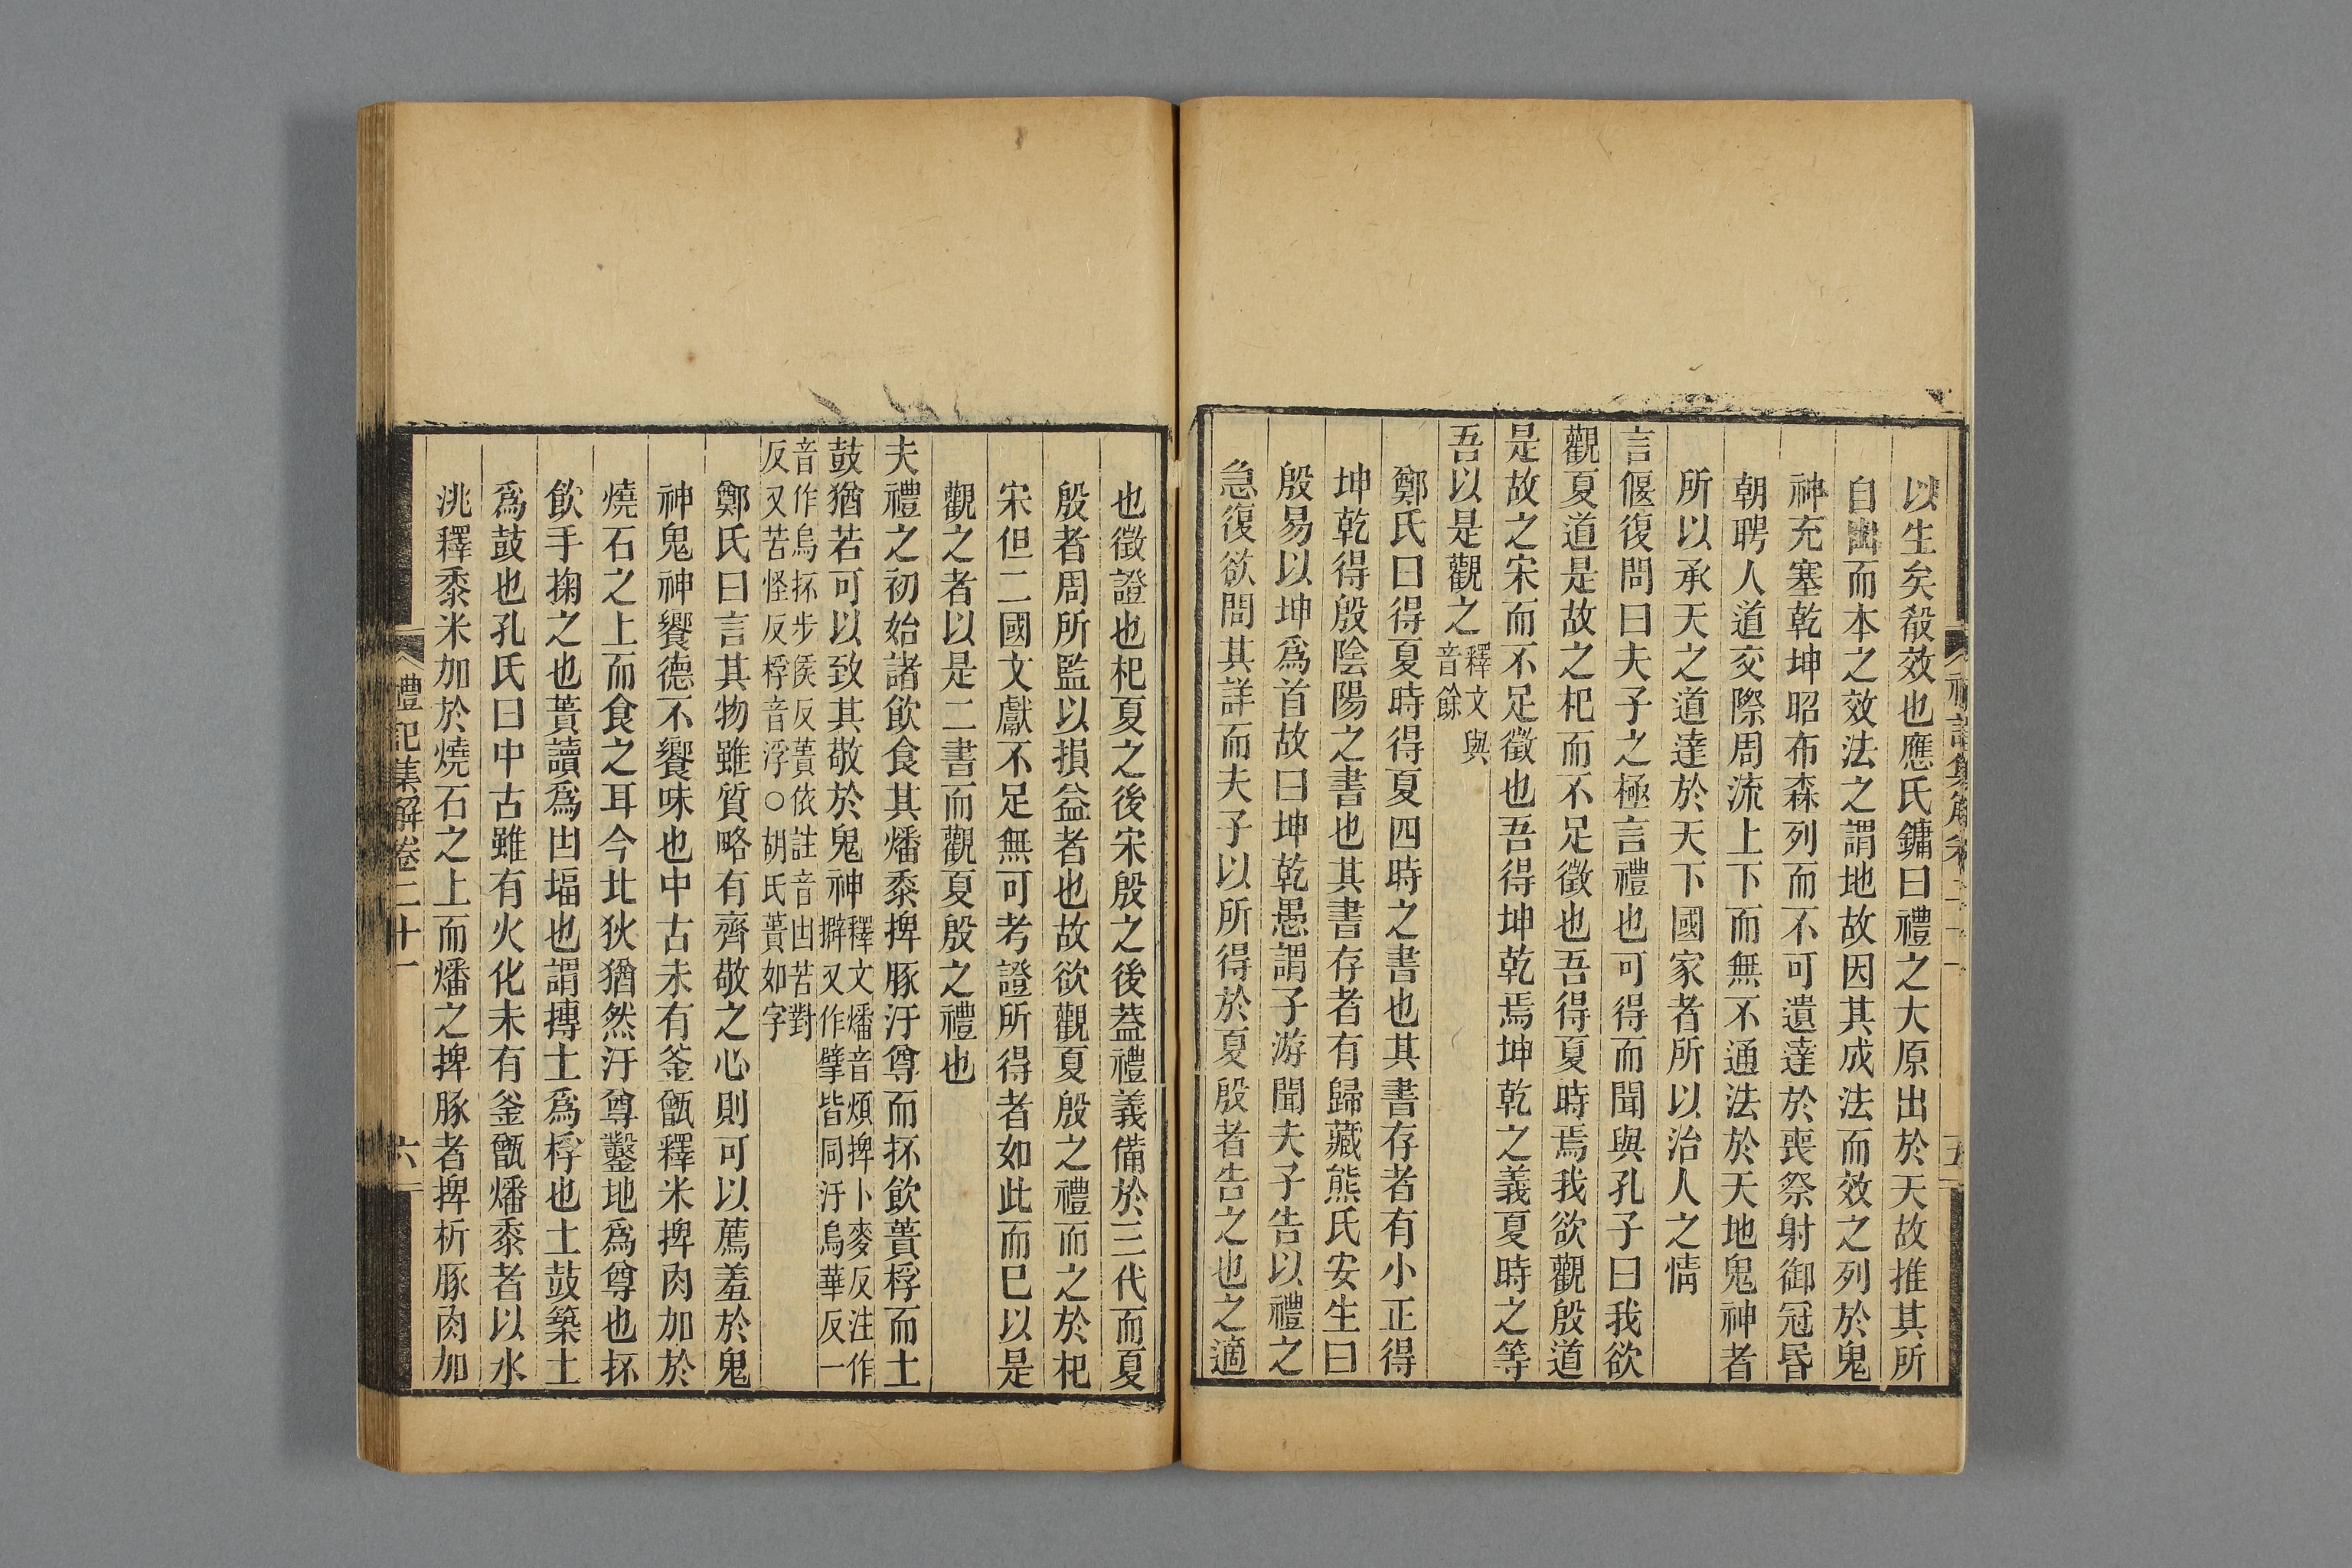 以生矣殽效也應氏鏞曰禮之大原出於天故推其所
自出而本之效法之謂地故因其成法而效之列於鬼
神充塞乾坤昭布森列而不可遺達於喪祭射御冠昏
朝聘人道交際周流上下而無不通法於天地鬼神者
所以承天之道達於天下國家者所以治人之情
言偃復問曰夫子之極言禮也可得而聞與孔子曰我欲
觀夏道是故之杞而不足徵也吾得夏時焉我欲觀殷道
是故之宋而不足徵也吾得坤乾焉坤乾之義夏時之等
吾以是觀之
釋文與
音餘
鄭氏曰得夏時得夏四時之書也其書存者有小正得
坤乾得殷陰陽之書也其書存者有歸藏熊氏安生曰
殷易以坤爲首故曰坤乾愚謂子游聞夫子告以禮之
急復欲問其詳而夫子以所得於夏殷者告之也之適
也徵證也杞夏之後宋殷之後葢禮義備於三代而夏
殷者周所監以損益者也故欲觀夏殷之禮而之於杞
宋但二國文獻不足無可考證所得者如此而已以是
觀之者以是二書而觀夏殷之禮也
夫禮之初始諸飲食其燔黍捭豚汙尊而抔飲蕢桴而土
鼓猶若可以致其敬於鬼神
釋文燔音煩捭卜麥反注作
擗又作擘皆同汙烏華反一
音作烏抔步侯反蕢依註音凷苦對
反又苦怪反桴音浮○胡氏蕢如字
鄭氏曰言其物雖質略有齊敬之心則可以薦羞於鬼
神鬼神饗德不饗味也中古未有釜甑釋米捭肉加於
燒石之上而食之耳今北狄猶然汙尊鑿地爲尊也抔
飲手掬之也蕢讀爲凷堛也謂摶土爲桴也土鼓築土
爲鼓也孔氏曰中古雖有火化未有釜甑燔黍者以水
洮釋黍米加於燒石之上而燔之捭豚者捭析豚肉加
禮記集解卷二十一
六